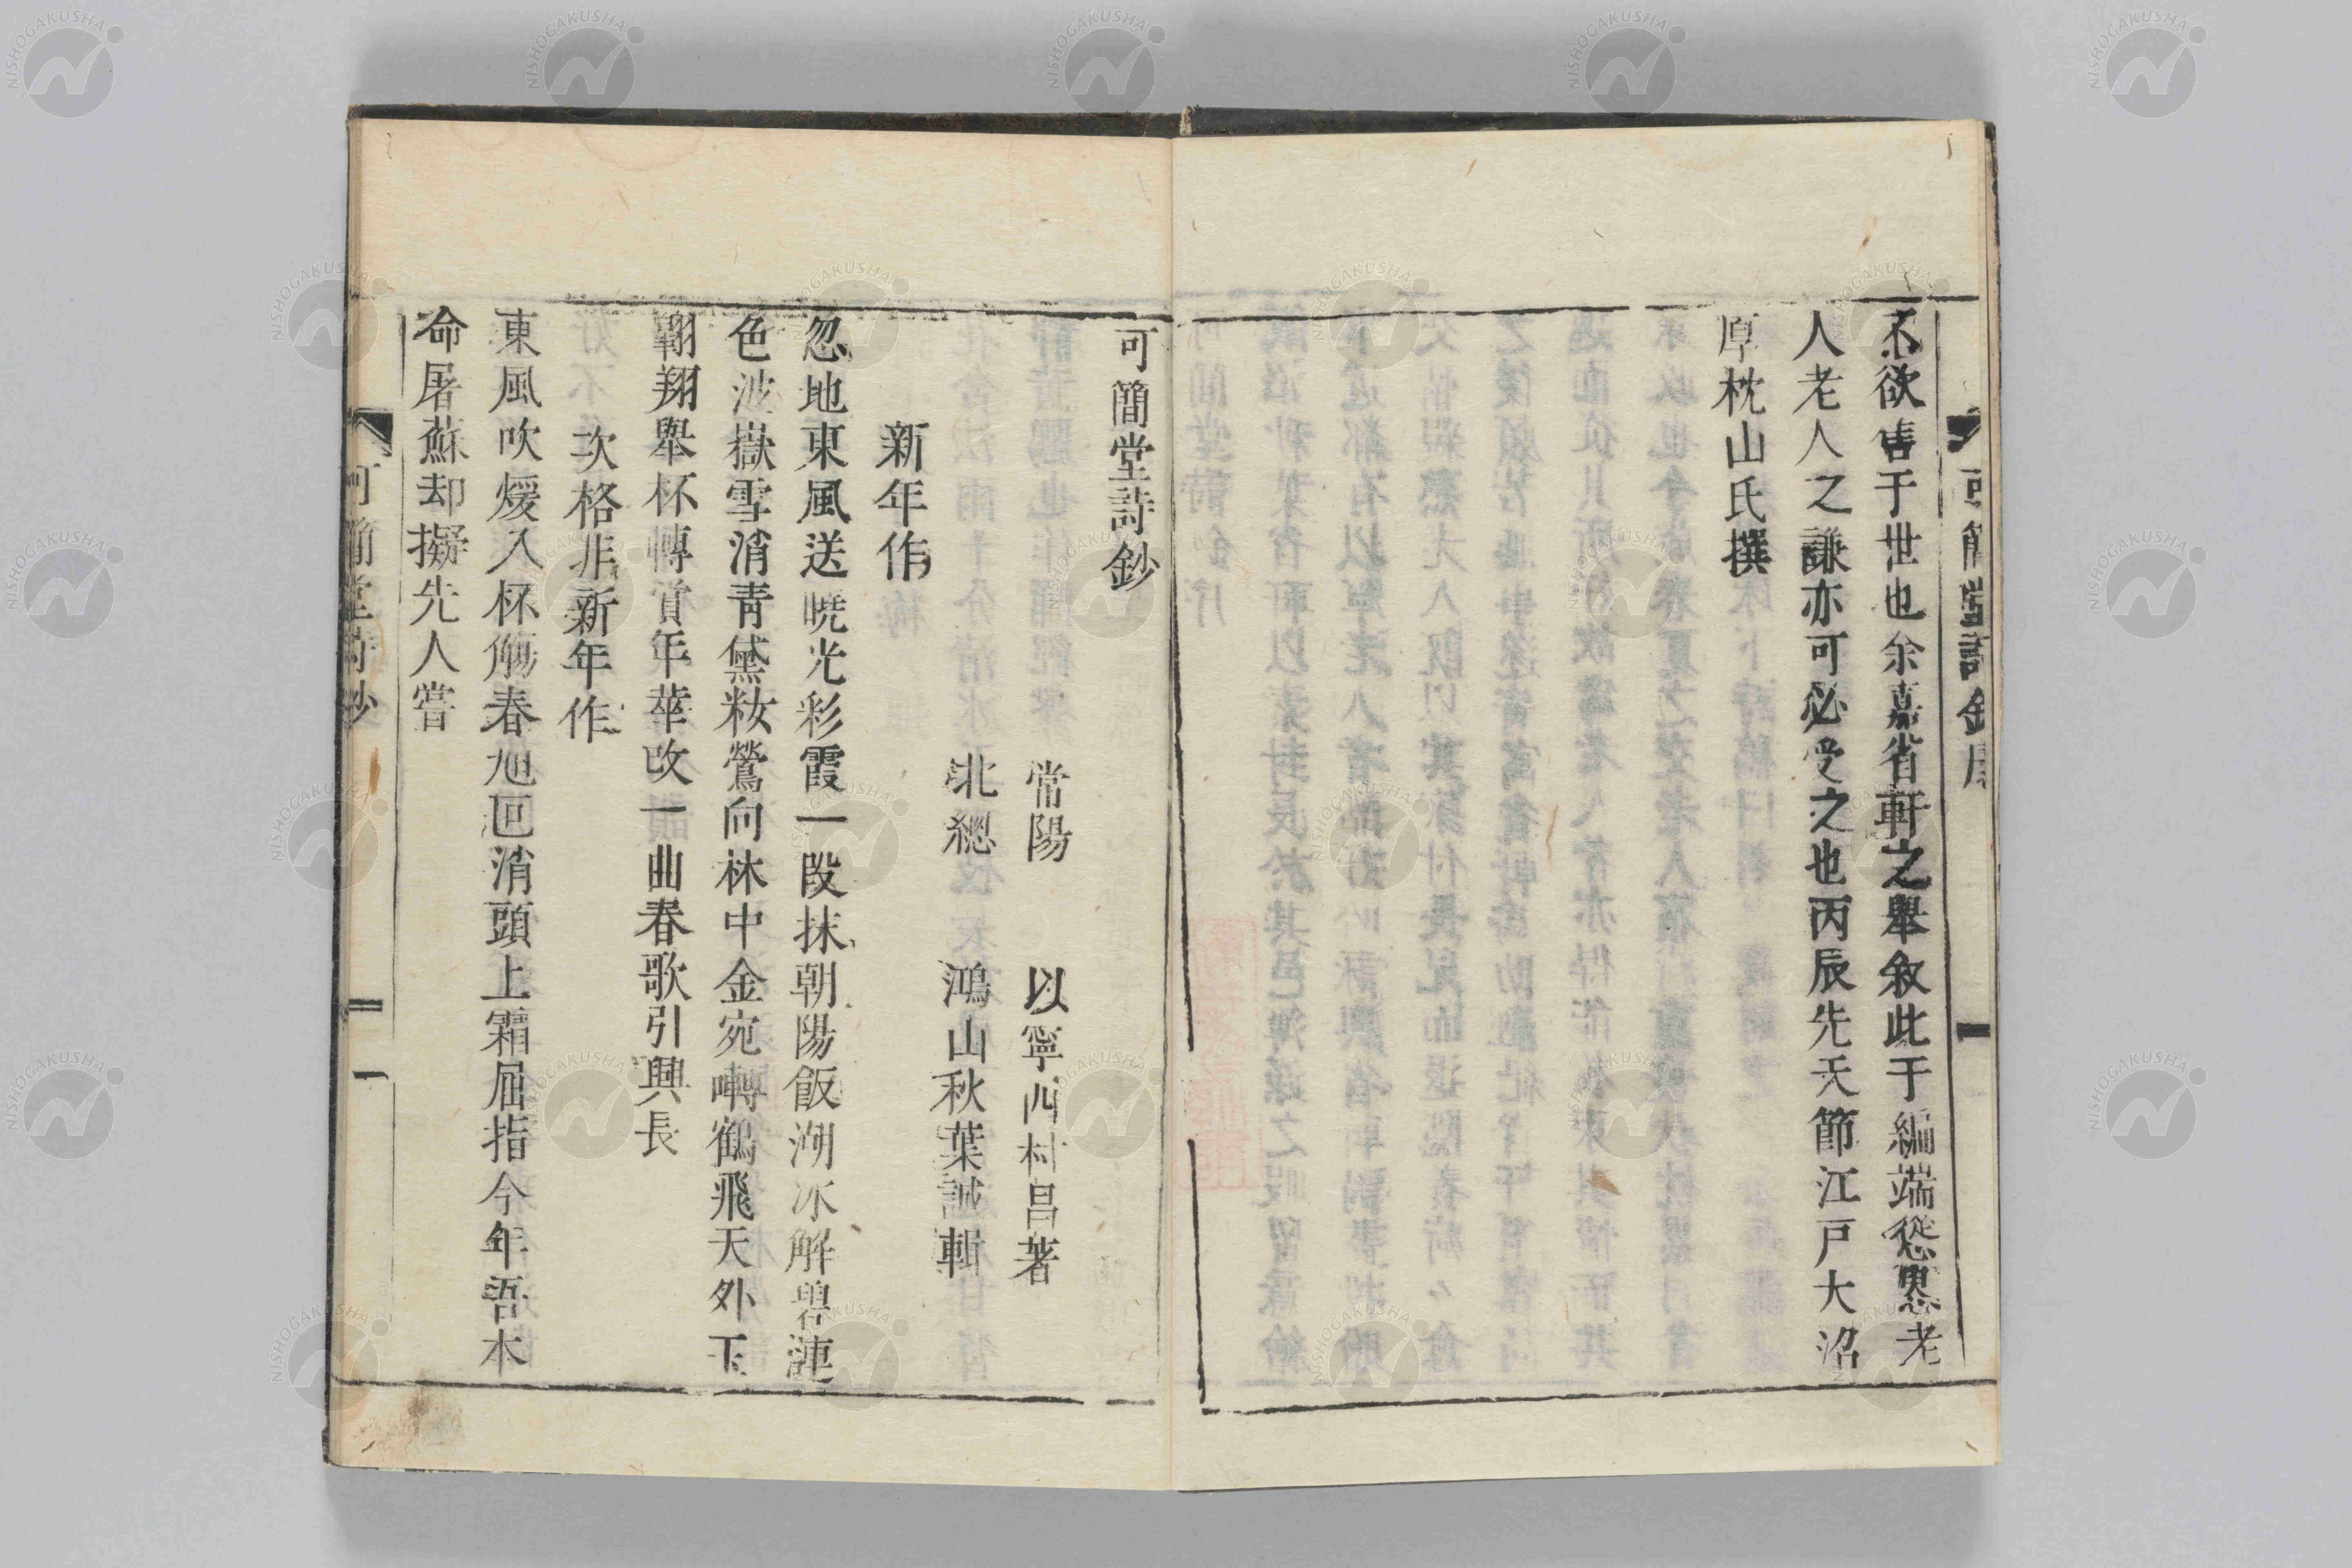 可簡堂詩鈔序
不欲售于世也余嘉省軒之舉敘此于編端慫慂老
人老人之謙亦可必受之也丙辰先天節江戸大沼
厚枕山氏撰
可簡堂詩鈔
常陽 以寧西村昌著
北總 鴻山秋葉誠輯
新年作
忽地東風送曉光彩霞一段抹朝陽飯湖冰解碧漣
色波嶽雪消青黛粧鶯向林中金宛囀鶴飛天外玉
翱翔舉杯轉賞年華改一曲春歌引興長
次格非新年作
東風吹煖入杯觴春旭回消頭上霜屈指今年吾本
命屠蘇却擬先人嘗
可簡堂詩鈔 一
NISHOGAKUSHA